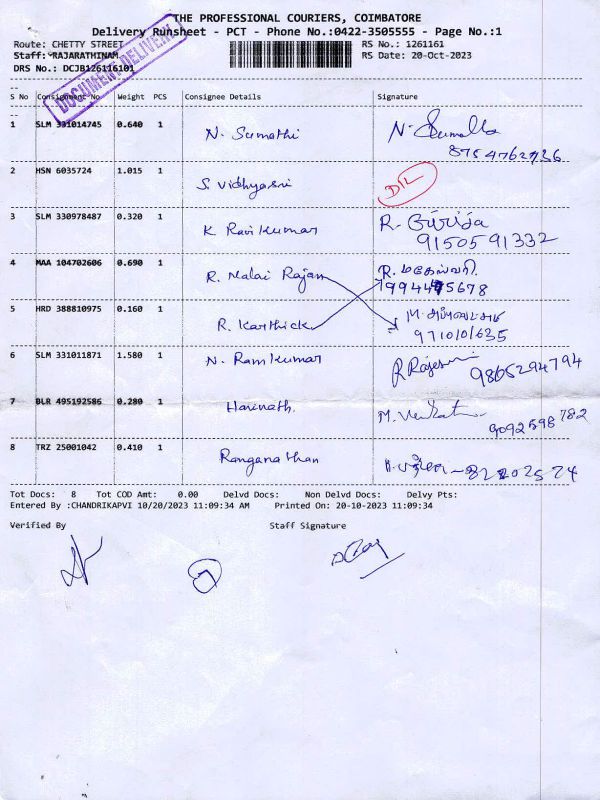 THE PROFESSIONAL COURIERS, COIMBATORE
Delivery Runsheet - PCT - Phone No.:0422-3505555 - Page No.:1
Route: CHETTY STREET RS No.: 1261161
Staff: RAJARATHINAM RS Date: 20-Oct-2023
DRS No.: DCJB126116101
DOCUMENT DELIVERY
S No Consignment No Weight PCS Consignee Details Signature
1 SLM 331014745 0.640 1 N. Sumathi N. Sumathi
8754762936
2 HSN 6035724 1.015 1 S. Vidhyasri
3 SLM 330978487 0.320 1 K Ravikumar R. Girija
9150591332
4 MAA 104702606 0.690 1 R. Malai Rajan R. மகேஸ்வரி
5 HRD 388810975 0.160 1 R. Karthick M.
9710101635
6 SLM 331011871 1.580 1 N. Ramkumar R Rajes
9865294794
7 BLR 495192586 0.280 1 Harinath. M. Venkat
9092598782
8 TRZ 25001042 0.410 1 Ranganathan
Tot Docs: 8 Tot COD Amt: 0.00 Delvd Docs: Non Delvd Docs: Delvy Pts:
Entered By :CHANDRIKAPVI 10/20/2023 11:09:34 AM Printed On: 20-10-2023 11:09:34
Verified By Staff Signature